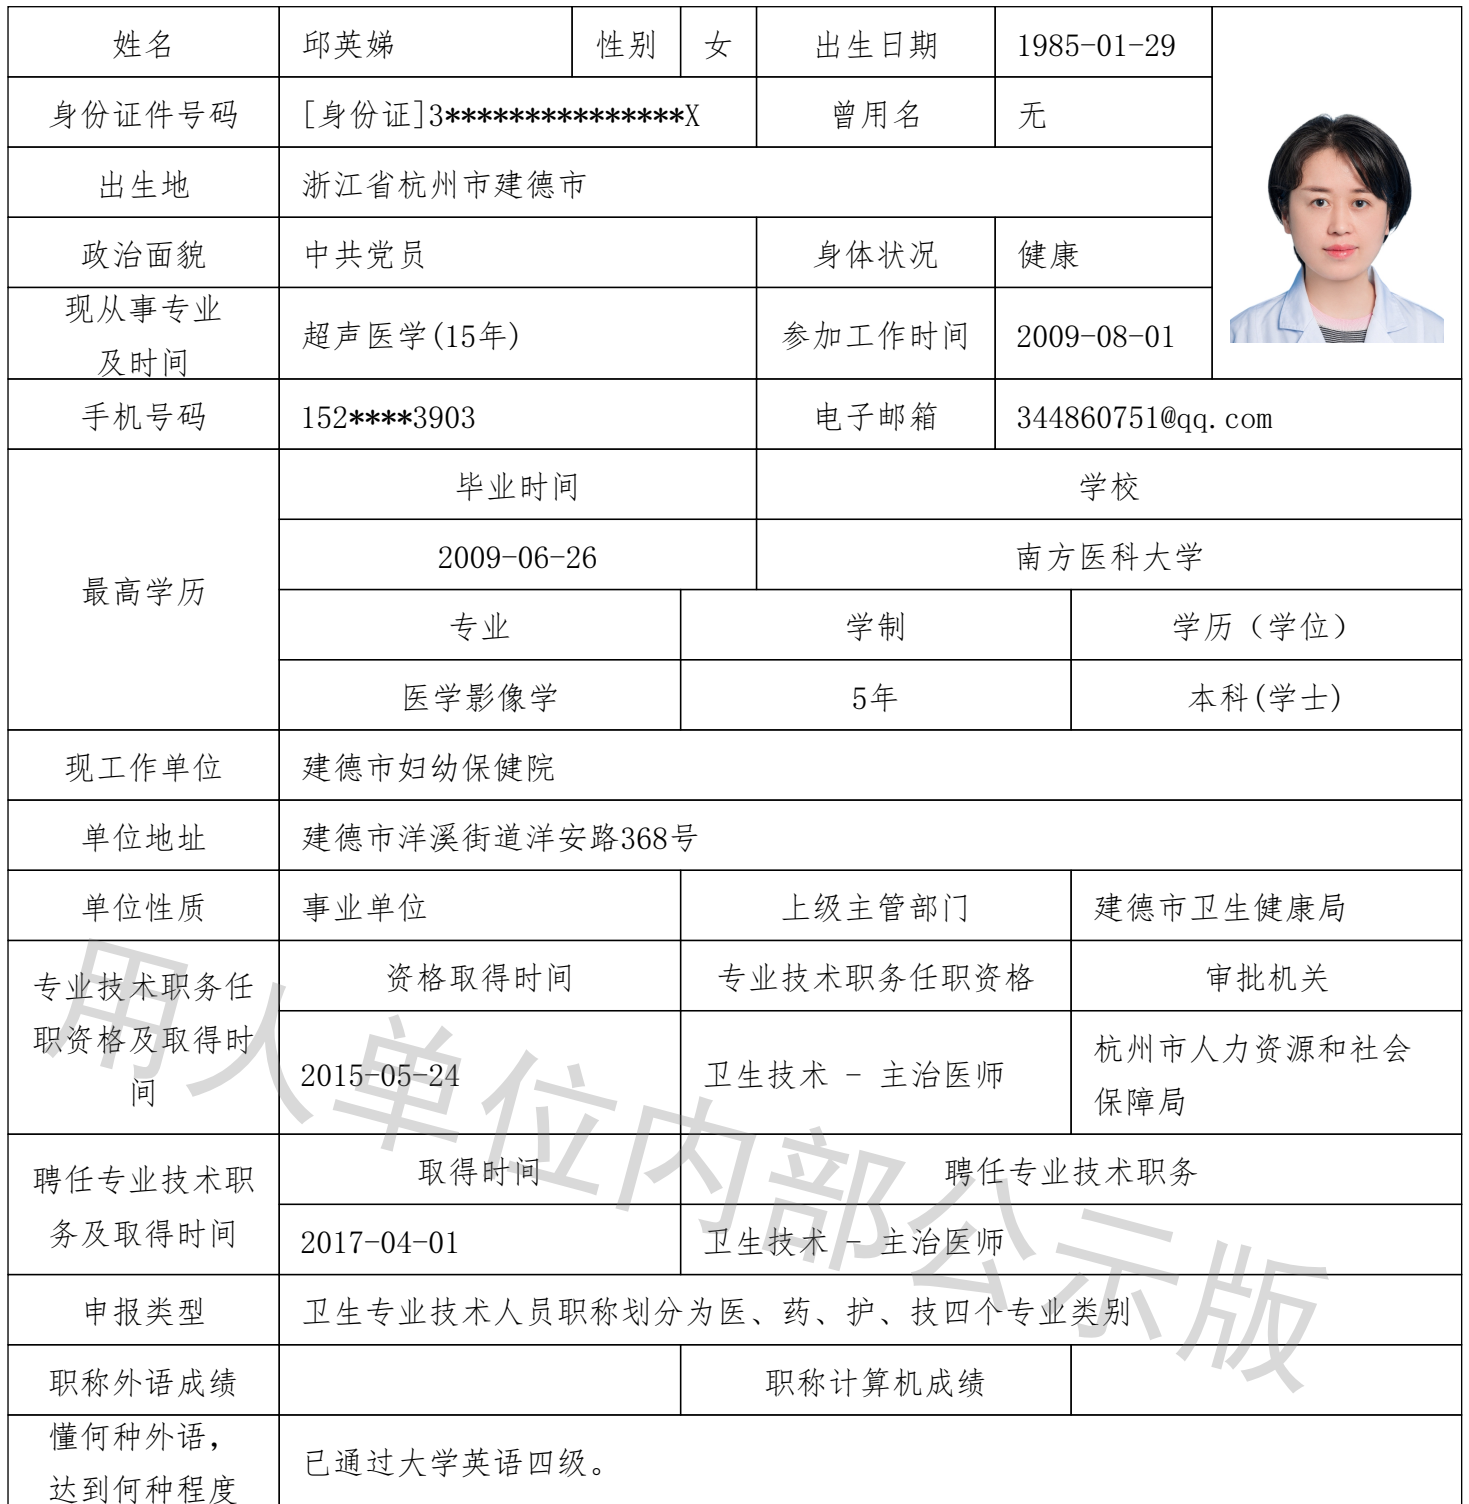 姓名 邱英娣 性别 女 出生日期 1985-01-29
身份证件号码 [身份证]3***************X 曾用名 无
出生地 浙江省杭州市建德市
政治面貌 中共党员 身体状况 健康
现从事专业
及时间 超声医学(15年) 参加工作时间 2009-08-01
手机号码 152****3903 电子邮箱 344860751@qq.com
最高学历
毕业时间 学校
2009-06-26 南方医科大学
专业 学制 学历（学位）
医学影像学 5年 本科(学士)
现工作单位 建德市妇幼保健院
单位地址 建德市洋溪街道洋安路368号
单位性质 事业单位 上级主管部门 建德市卫生健康局
专业技术职务任
职资格及取得时
间
资格取得时间 专业技术职务任职资格 审批机关
2015-05-24 卫生技术 - 主治医师 杭州市人力资源和社会
保障局
聘任专业技术职
务及取得时间
取得时间 聘任专业技术职务
2017-04-01 卫生技术 - 主治医师
申报类型 卫生专业技术人员职称划分为医、药、护、技四个专业类别
职称外语成绩 职称计算机成绩
懂何种外语，
达到何种程度 已通过大学英语四级。
用人单位内部公示版